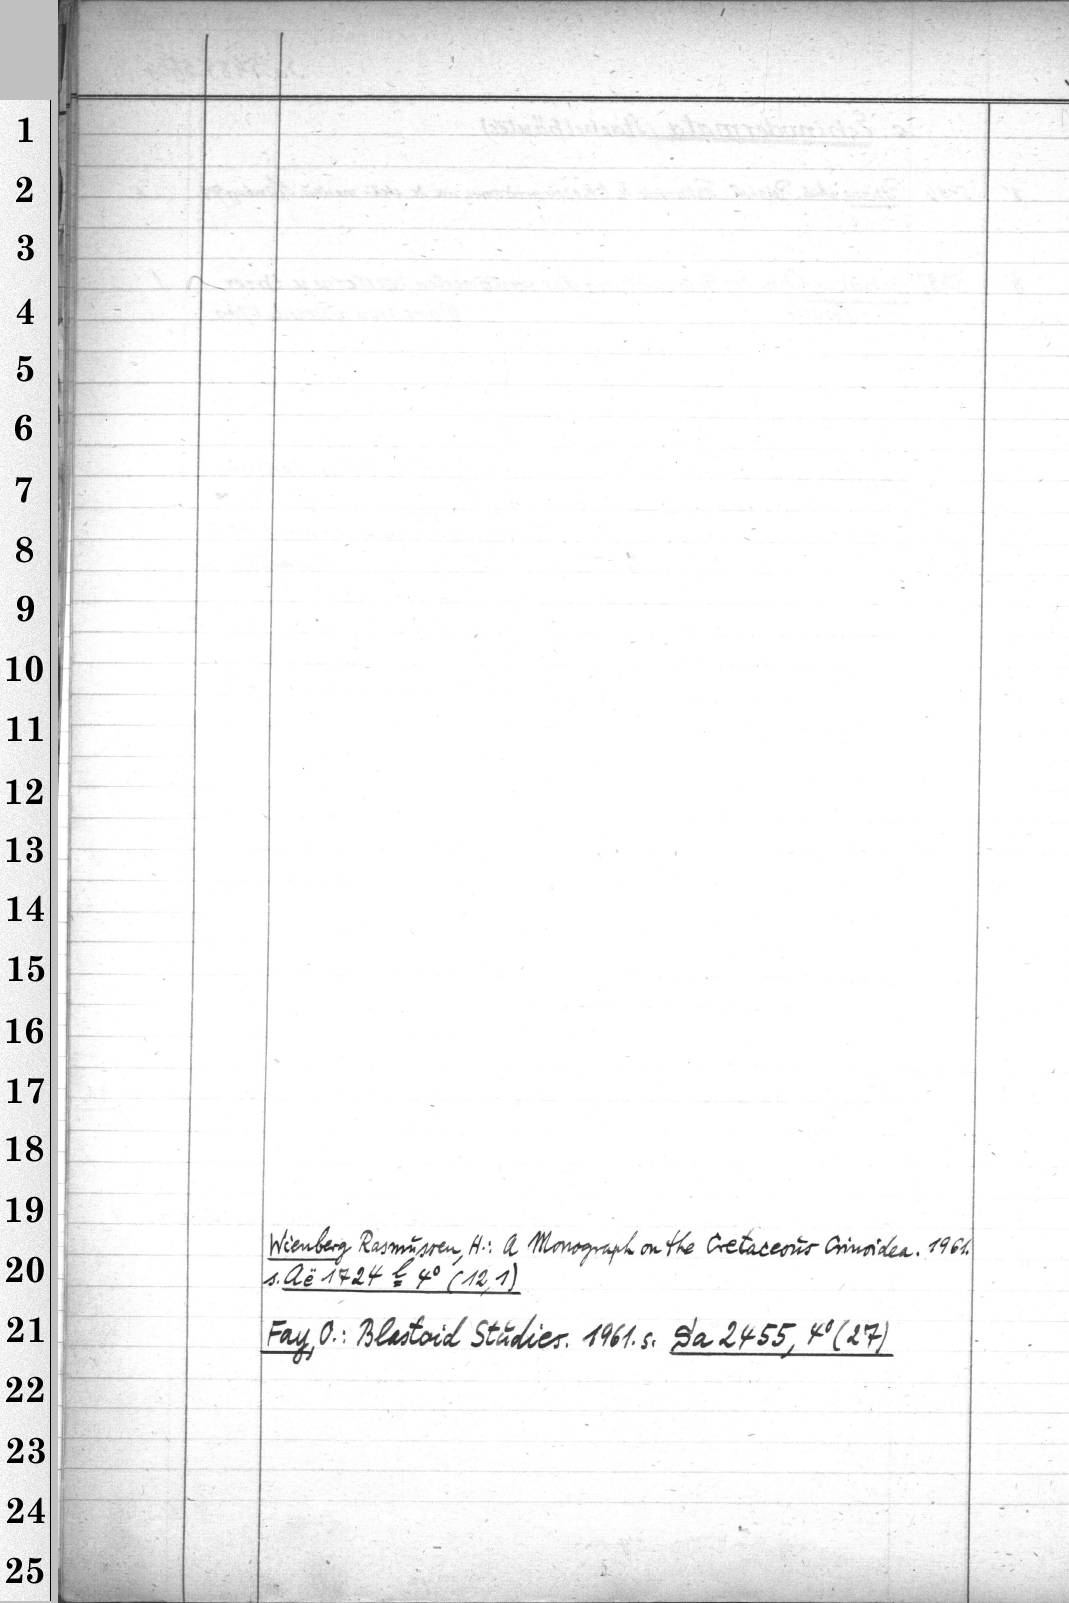 1
2
3
4
5
6
7
8
9
10
11
12
13
14
15
16
17
18
19
Wienberg Rasmussen, H.: A Monograph on the Cretaceous Crinoidea. 1961.
20
s. Aë 1724 4° (12,1)
21
Fay, O.: Blastoid Studies. 1961. s. Sa 2455, 4° (27)
22
23
24
25